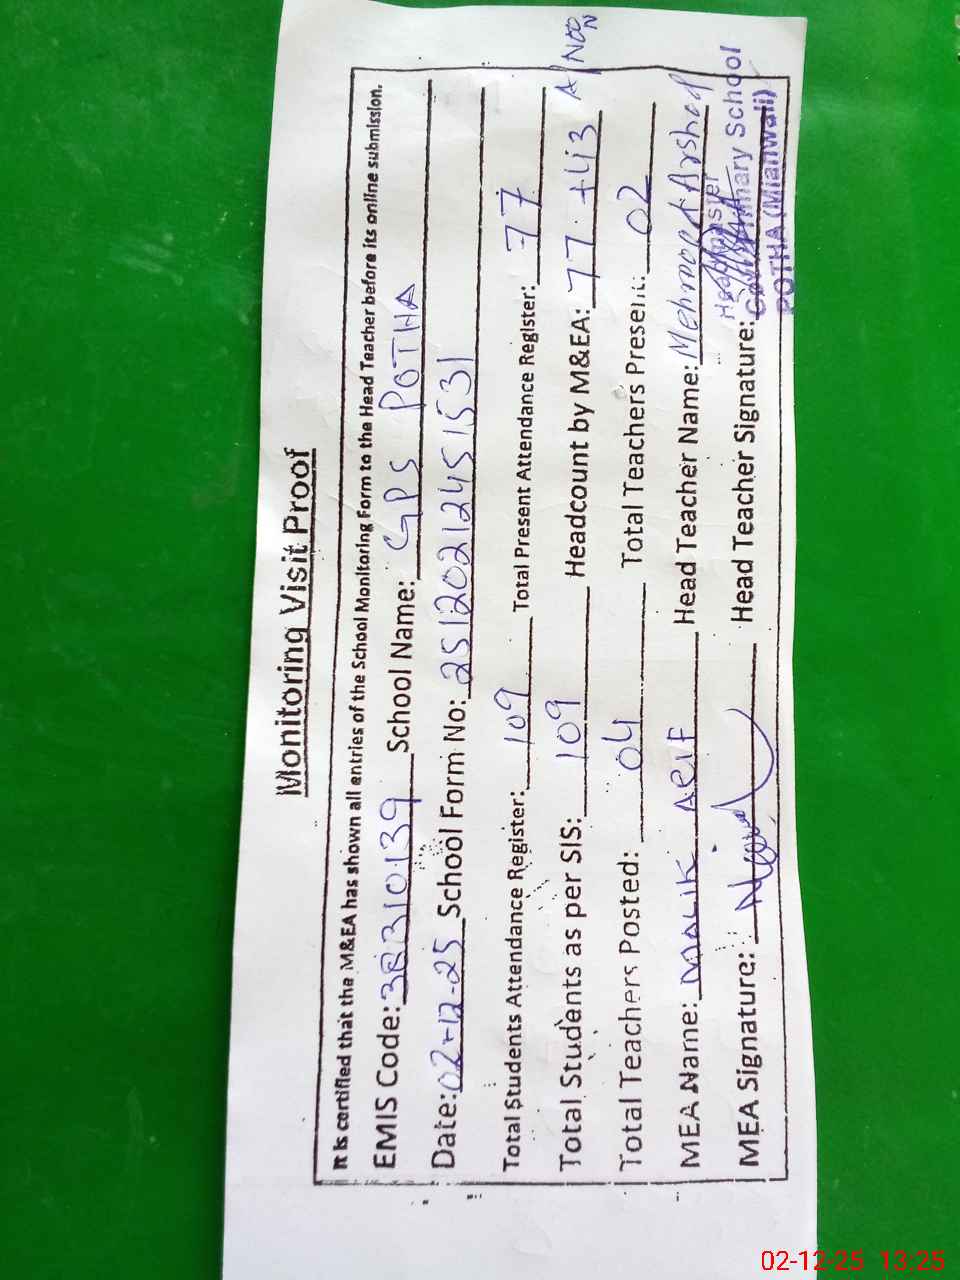 Monitoring Visit Proof
It is certified that the M&EA has shown all entries of the School Monitoring Form to the Head Teacher before its online submission.
EMIS Code: 38310139 School Name: GPS POTHA
Date: 02-12-25 School Form No: 2512021245 1531
Total Students Attendance Register: 109 Total Present Attendance Register: 77
Total Students as per SIS: 109 Headcount by M&EA: 77 +43 A/Noon
Total Teachers Posted: 04 Total Teachers Present: 02
MEA Name: MALIK ARIF Head Teacher Name: Mehmood Arshad
MEA Signature: Head Teacher Signature:
Headmaster
Govt. Primary School
POTHA (Mianwali)
02-12-25 13:25